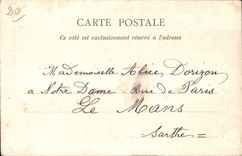 20
CARTE POSTALE
Ce côté est exclusivement réservé à l'adresse
Mademoiselle Alice Dorizon
a Notre Dame - Rue de Paris
Le Mans
Sarthe =